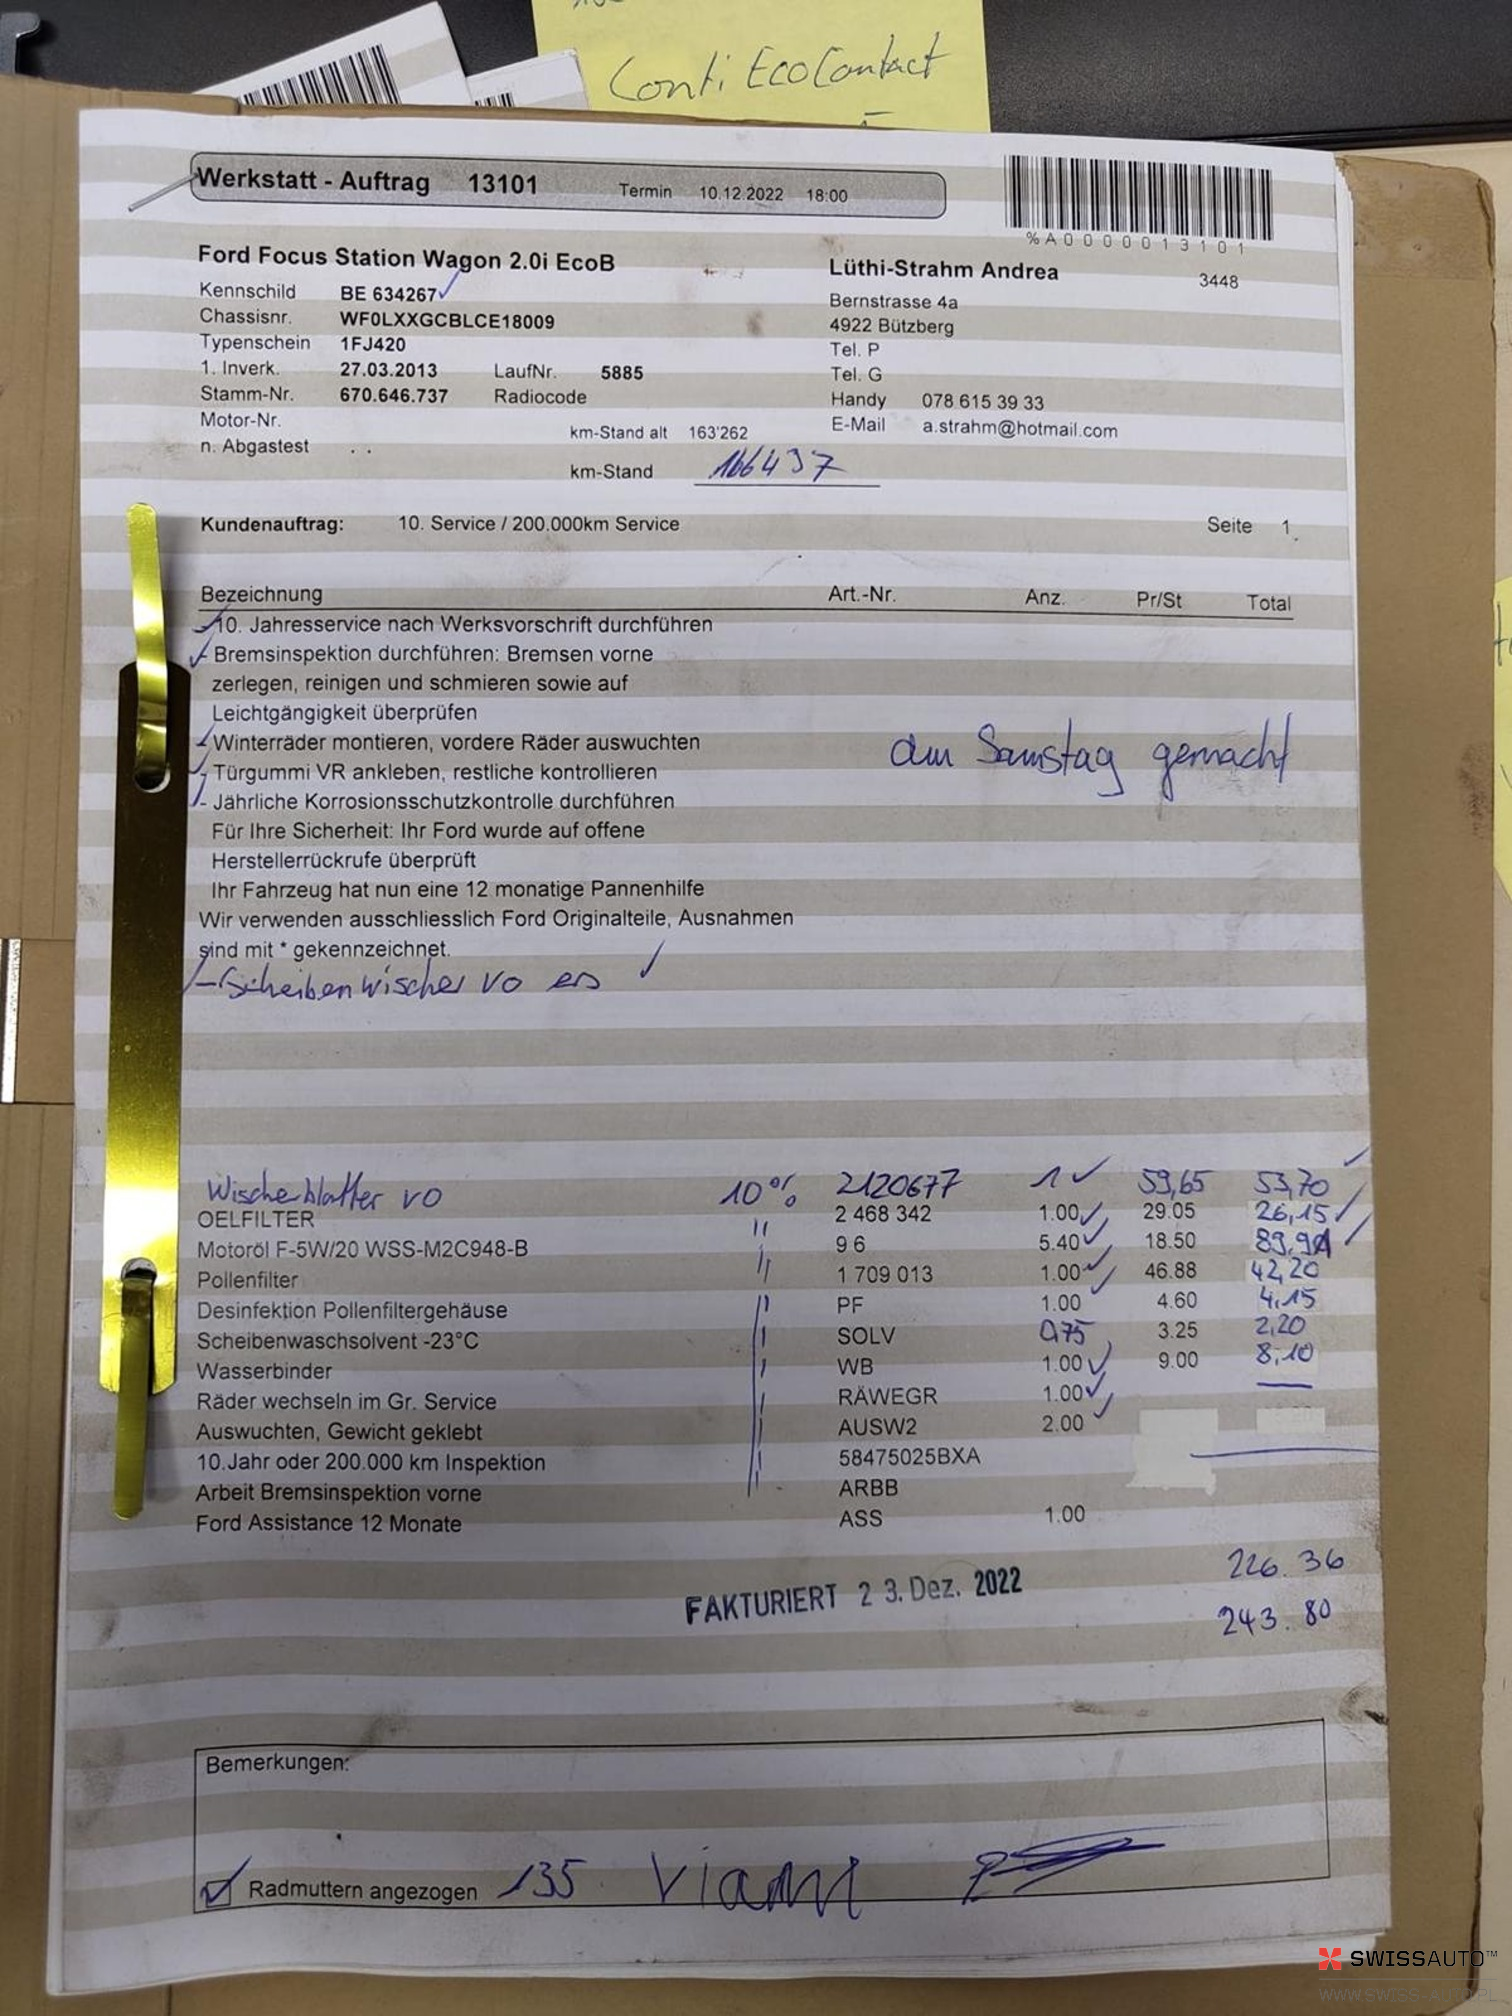 Conti EcoContact
Werkstatt - Auftrag 13101 Termin 10.12.2022 18:00
%A0000013101
Ford Focus Station Wagon 2.0i EcoB Lüthi-Strahm Andrea 3448
Kennschild BE 634267 Bernstrasse 4a
Chassisnr. WF0LXXGCBLCE18009 4922 Bützberg
Typenschein 1FJ420 Tel. P
1. Inverk. 27.03.2013 LaufNr. 5885 Tel. G
Stamm-Nr. 670.646.737 Radiocode Handy 078 615 39 33
Motor-Nr. km-Stand alt 163'262 E-Mail a.strahm@hotmail.com
n. Abgastest . . km-Stand 166437
Kundenauftrag: 10. Service / 200.000km Service Seite 1
Bezeichnung Art.-Nr. Anz. Pr/St Total
-10. Jahresservice nach Werksvorschrift durchführen
- Bremsinspektion durchführen: Bremsen vorne
zerlegen, reinigen und schmieren sowie auf
Leichtgängigkeit überprüfen
- Winterräder montieren, vordere Räder auswuchten am Samstag gemacht
- Türgummi VR ankleben, restliche kontrollieren
- Jährliche Korrosionsschutzkontrolle durchführen
Für Ihre Sicherheit: Ihr Ford wurde auf offene
Herstellerrückrufe überprüft
Ihr Fahrzeug hat nun eine 12 monatige Pannenhilfe
Wir verwenden ausschliesslich Ford Originalteile, Ausnahmen
sind mit * gekennzeichnet.
- Scheibenwischer vo ers
Wischerblatter vo 10% 2120677 1 59,65 53,70
OELFILTER " 2 468 342 1.00 29.05 26,15
Motoröl F-5W/20 WSS-M2C948-B 9 6 5.40 18.50 89,91
Pollenfilter 1 709 013 1.00 46.88 42,20
Desinfektion Pollenfiltergehäuse PF 1.00 4.60 4,15
Scheibenwaschsolvent -23°C SOLV 0,75 3.25 2,20
Wasserbinder WB 1.00 9.00 8,10
Räder wechseln im Gr. Service RÄWEGR 1.00
Auswuchten, Gewicht geklebt AUSW2 2.00
10.Jahr oder 200.000 km Inspektion 58475025BXA
Arbeit Bremsinspektion vorne ARBB
Ford Assistance 12 Monate ASS 1.00
226.36
FAKTURIERT 23. Dez. 2022
243.80
Bemerkungen:
Radmuttern angezogen 135
SWISSAUTO™
WWW.SWISS-AUTO.PL